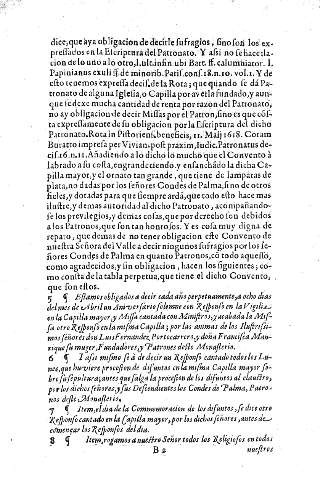 dize, que aya obligacion de decirle sufragios, sino son los ex-
pressados en la Escriptura del Patronato. Y assi no se haze la-
cion de lo uno a lo otro, l. ultin. in ubi Bart. ff. calumniator. l.
Papinianus exuli ff. de minorib. Paris. cons. 18. n. 10. vol. 1. Y de
esto tenemos expressa decis. de la Rota; que quando se dà Pa-
tronato de alguna Iglesia, o Capilla por averla fundado, y aun-
que se dexe mucha cantidad de renta por razon del Patronato,
no ay obligacion de decir Missas por el Patron, sino es que cõs-
ta expressamente de su obligacion por la Escriptura del dicho
Patronato. Rota in Pistorien. beneficii, 11. Maij 1618. Coram
Buratto impressa per Vivian. post praxim, Iudic. Patronatus de-
cis. 16. n. 11. Añadiendo a lo dicho lo mucho que el Convento à
labrado a su costa, engrandeciendo, y ensanchãdo la dicha Ca-
pilla mayor, y el ornato tan grande, que tiene de lamparas de
plata, no dadas por los señores Condes de Palma, sino de otros
fieles, y dotadas para que siempre ardã, que todo esto hace mas
ilustre, y de mas autoridad al dicho Patronato, acompañando-
se los previlegios, y demas cosas, que por derecho son debidos
a los Patronos, que son tan honrosos. Y es cosa muy digna de
reparo, que demas de no tener obligacion este Convento de
nuestra Señora del Valle a decir ningunos sufragios por los se-
ñores Condes de Palma en quanto Patronos, cõ todo aquesso,
como agradecidos, y sin obligacion, hacen los siguientes; co-
mo consta de la tabla perpetua, que tiene el dicho Convento,
que son estos.
5 ¶ Estamos obligados a decir cada año perpetuamente, a ocho dias
del mes de Abril un Aniversario solemne con Responso en la Vigilia
en la Capilla mayor, y Missa cantada con Ministros, y acabada la Mis-
sa otro Responso en la misma Capilla; por las animas de los Illustrissi-
mos señores don Luis Fernandez Portocarrero, y doña Francisca Man-
rique su muger, Fundadores, y Patrones deste Monasterio.
6 ¶ Y assi mismo se à de decir un Responso cantado todos los Lu-
nes, que huviere procession de difuntos en la misma Capilla mayor so-
bre su sepultura, antes que salga la procession de los difuntos al claustro,
por los dichos señores, y sus Descendientes los Condes de Palma, Patro-
nos deste Monasterio.
7 ¶ Item, el dia de la Commemoracion de los difuntos, se dice otro
Responso cantado en la Capilla mayor, por los dichos señores, antes de
començar los Responsos del dia.
8 ¶ Item, rogamos a nuestro Señor todos los Religiosos en todos
B 2 nuestros